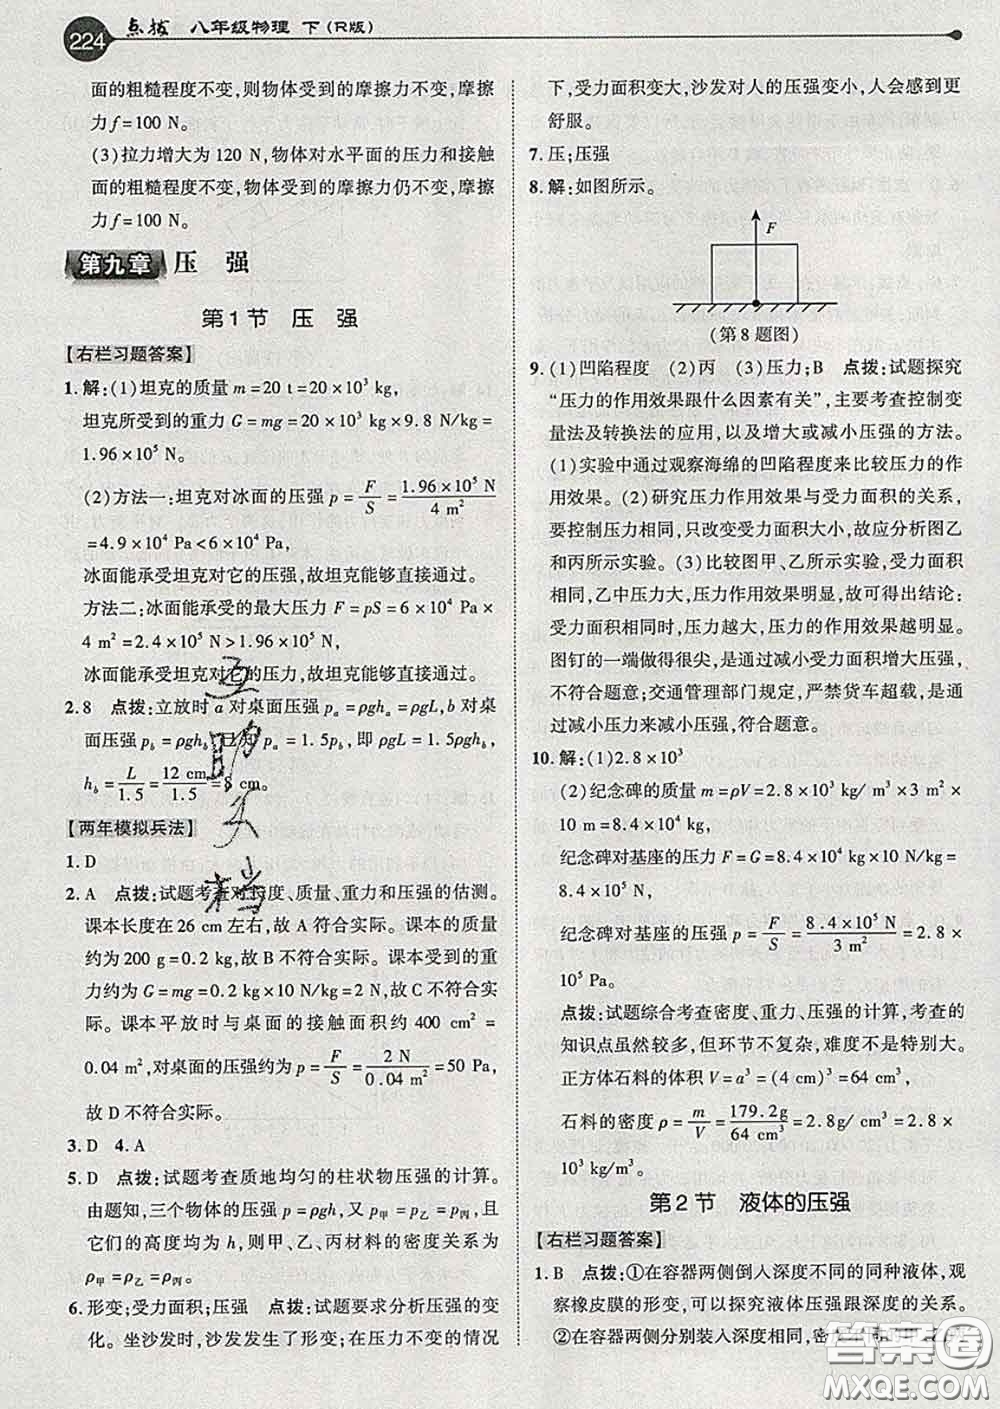 224 点拨 八年级物理 下(R版)
面的粗糙程度不变,则物体受到的摩擦力不变,摩擦
力f=100 N。
(3)拉力增大为120 N,物体对水平面的压力和接触
面的粗糙程度不变,物体受到的摩擦力仍不变,摩擦
力f=100 N。
第九章 压 强
第1节 压 强
【右栏习题答案】
1. 解:(1)坦克的质量 m=20 t=20×10³ kg,
坦克所受到的重力 G=mg=20×10³ kg×9.8 N/kg=
1.96×10⁵ N。
(2)方法一:坦克对冰面的压强 p=F/S=1.96×10⁵ N/4 m²
=4.9×10⁴ Pa<6×10⁴ Pa,
冰面能承受坦克对它的压强,故坦克能够直接通过。
方法二:冰面能承受的最大压力 F=pS=6×10⁴ Pa×
4 m²=2.4×10⁵ N>1.96×10⁵ N,
冰面能承受坦克对它的压力,故坦克能够直接通过。
2. 8 点拨:立放时a对桌面压强pₐ=ρghₐ=ρgL,b对桌
面压强p_b=ρgh_b,已知pₐ=1.5p_b,即ρgL=1.5ρgh_b,
h_b=L/1.5=12 cm/1.5=8 cm。
【两年模拟兵法】
1. D
2. A 点拨:试题考查对长度、质量、重力和压强的估测。
课本长度在26 cm左右,故A符合实际。课本的质量
约为200 g=0.2 kg,故B不符合实际。课本受到的重
力约为G=mg=0.2 kg×10 N/kg=2 N,故C不符合实
际。课本平放时与桌面的接触面积约400 cm²=
0.04 m²,对桌面的压强约为p=F/S=2 N/0.04 m²=50 Pa,
故D不符合实际。
3. D 4. A
5. D 点拨:试题考查质地均匀的柱状物压强的计算。
由题知,三个物体的压强p=ρgh,又p甲=p乙=p丙,且
它们的高度均为h,则甲、乙、丙材料的密度关系为
ρ甲=ρ乙=ρ丙。
6. 形变;受力面积;压强 点拨:试题要求分析压强的变
化。坐沙发时,沙发发生了形变;在压力不变的情况
下,受力面积变大,沙发对人的压强变小,人会感到更
舒服。
7. 压;压强
8. 解:如图所示。
F
(第8题图)
9. (1)凹陷程度 (2)丙 (3)压力;B 点拨:试题探究
“压力的作用效果跟什么因素有关”,主要考查控制变
量法及转换法的应用,以及增大或减小压强的方法。
(1)实验中通过观察海绵的凹陷程度来比较压力的作
用效果。(2)研究压力作用效果与受力面积的关系,
要控制压力相同,只改变受力面积大小,故应分析图乙
和丙所示实验。(3)比较图甲、乙所示实验,受力面积
相同,乙中压力大,压力作用效果明显。故可得出结论:
受力面积相同时,压力越大,压力的作用效果越明显。
图钉的一端做得很尖,是通过减小受力面积增大压强,
不符合题意;交通管理部门规定,严禁货车超载,是通
过减小压力来减小压强,符合题意。
10. 解:(1)2.8×10³
(2)纪念碑的质量 m=ρV=2.8×10³ kg/m³×3 m²×
10 m=8.4×10⁴ kg,
纪念碑对基座的压力 F=G=8.4×10⁴ kg×10 N/kg=
8.4×10⁵ N,
纪念碑对基座的压强 p=F/S=8.4×10⁵ N/3 m²=2.8×
10⁵ Pa。
点拨:试题综合考查密度、重力、压强的计算,考查的
知识点虽然较多,但环节不复杂,难度不是特别大。
正方体石料的体积 V=a³=(4 cm)³=64 cm³,
石料的密度 ρ=m/V=179.2g/64 cm³=2.8g/cm³=2.8×
10³ kg/m³。
第2节 液体的压强
【右栏习题答案】
1. B 点拨:①在容器两侧倒入深度不同的同种液体,观
察橡皮膜的形变,可以探究液体压强跟深度的关系。
②在容器两侧分别装入深度相同,密
答案圈
MXQE.COM